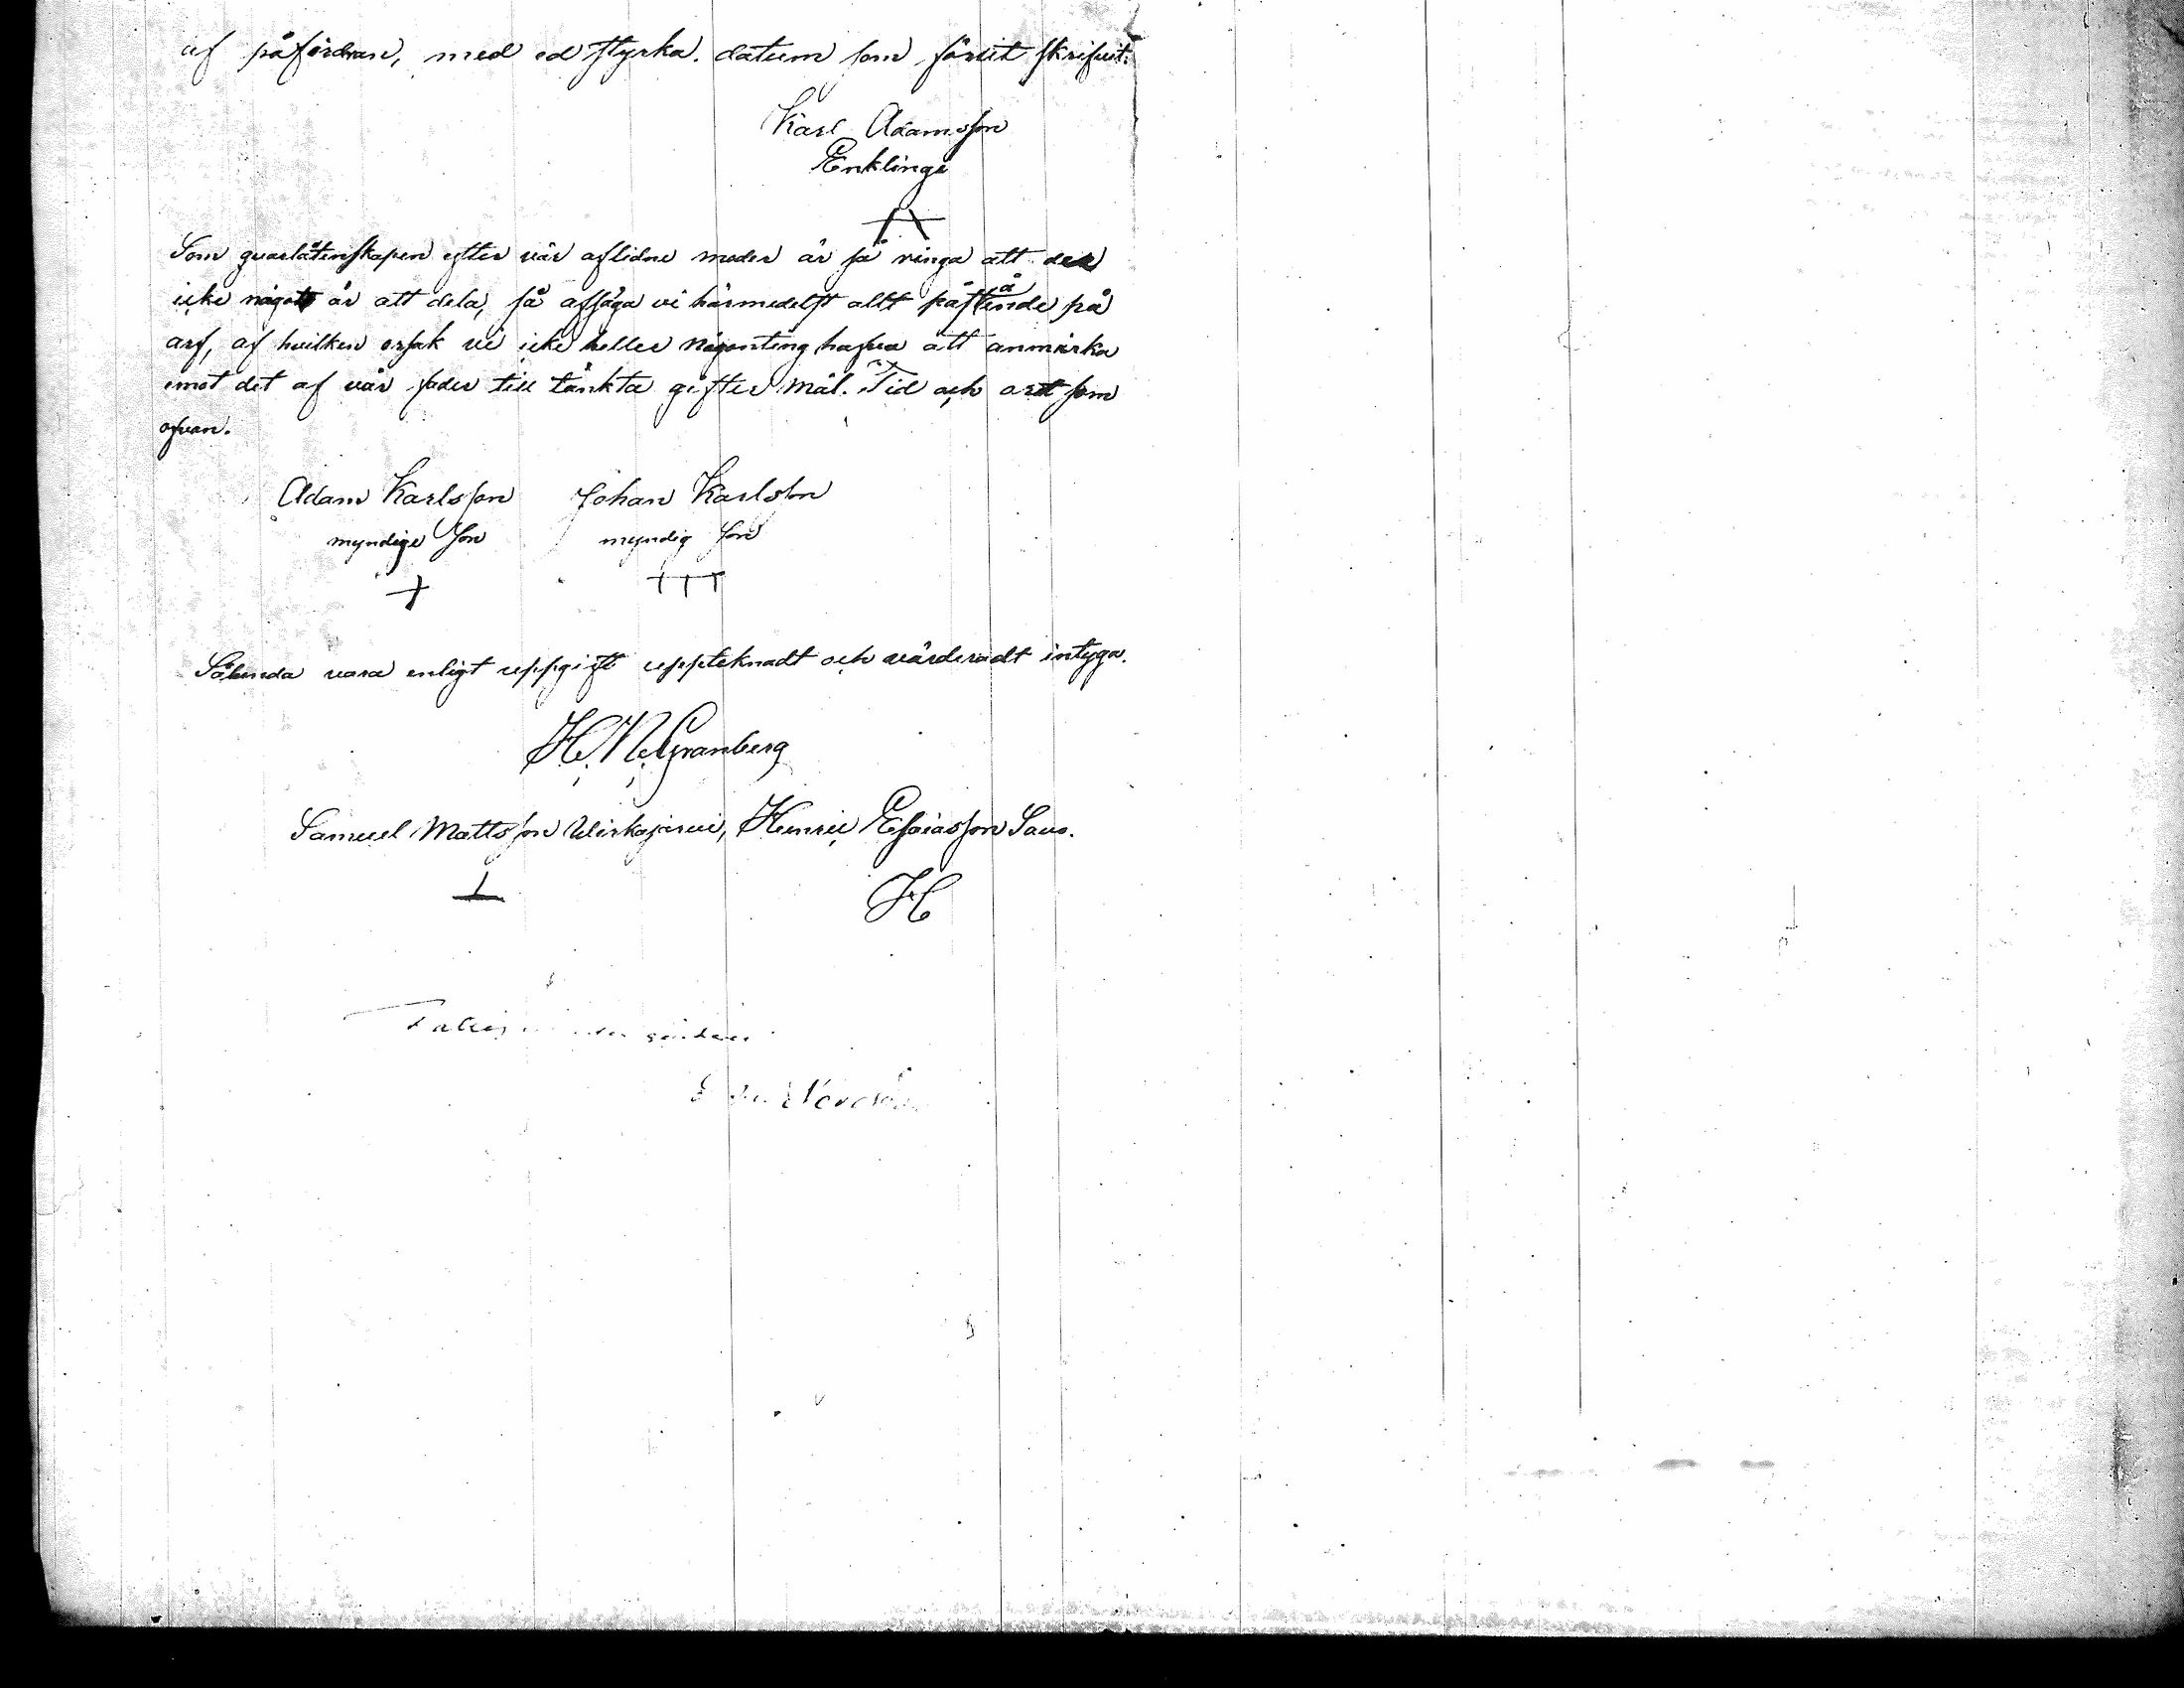 af påfordran, med ed styrka. datum som förut skrifvit.
Karl Adamsson
Enklinge
Som qvarlåtenskapen efter vår aflidne moder är så ringa att der
icke något är att dela, så afsäga vi härmedelst allt påstående på
arf, af hvilken orsak vi icke heller någonting hafva att anmärka
emot det af vår fader till tänkta gifter mål. Tid och ort som
ofvan.
Adam Karlsson Johan Karlsson
myndige son myndig son
Sålunda vara enligt uppgift uppteknadt och värderadt intyga.
H. N. Granberg
Samuel Mattsson Wirkajärvi, Henric Esaiasson Saus.
H